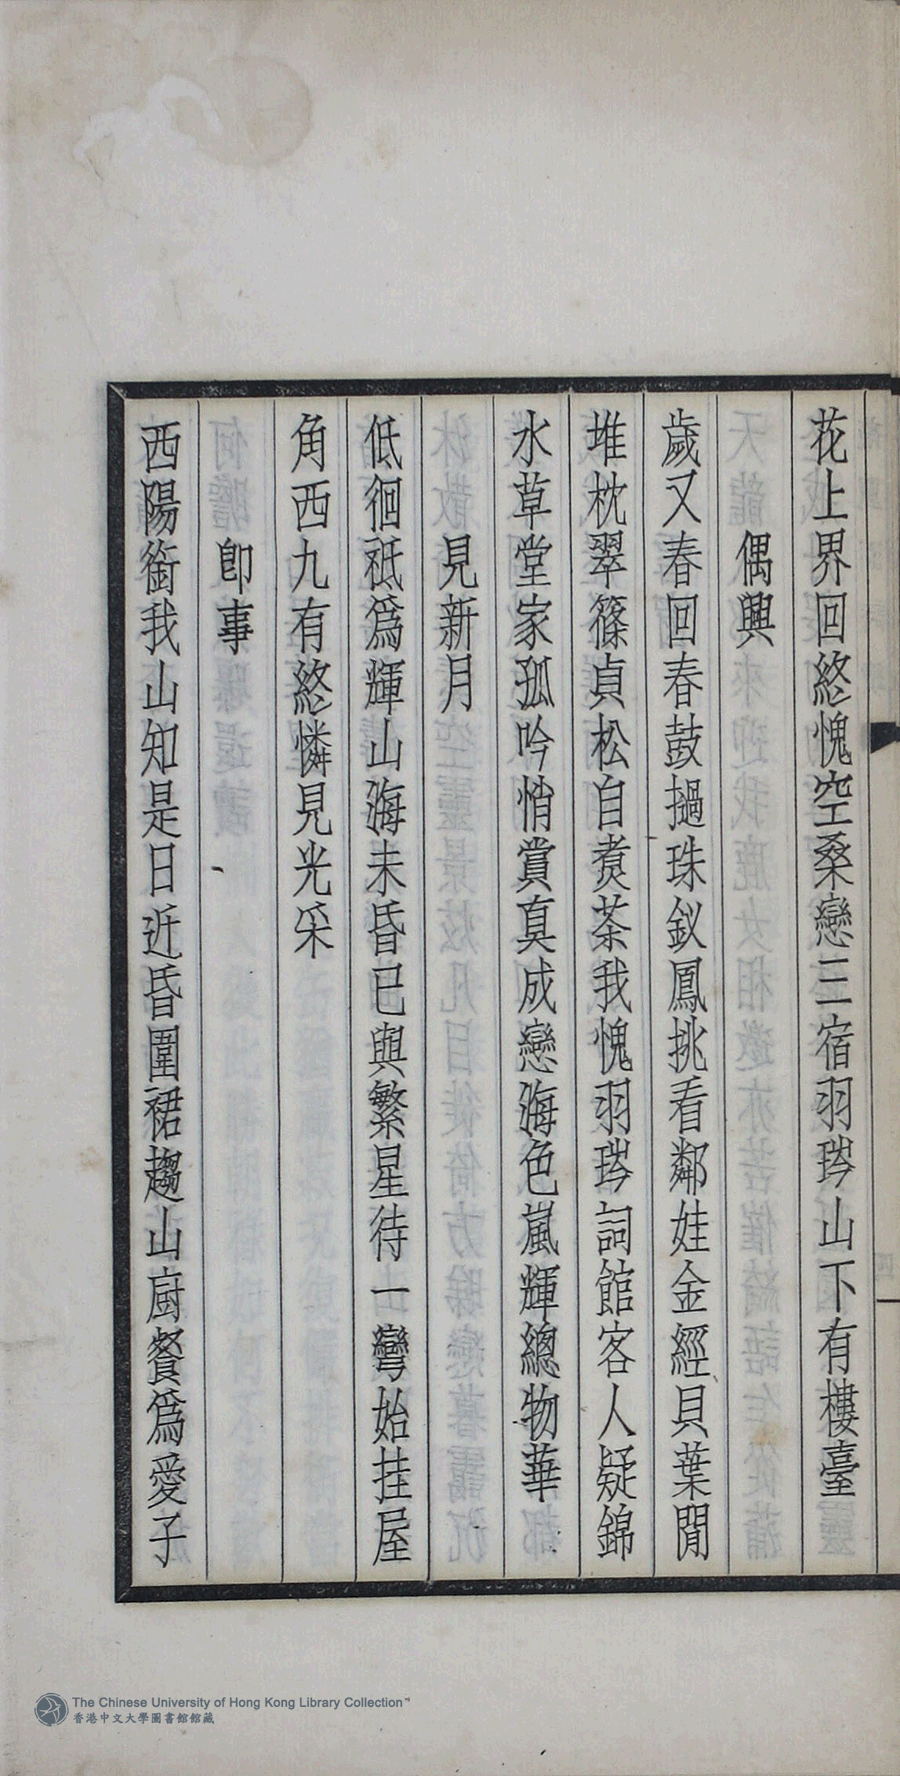 花上界回終愧空桑戀三宿羽琌山下有樓臺
偶興
歲又春回春鼓撾珠釵鳳挑看鄰娃金經貝葉閒
堆枕翠篠貞松自煑茶我愧羽琌詞館客人疑錦
水草堂家孤吟悄賞真成戀海色嵐輝總物華
見新月
低徊祗爲輝山海未昏已與繁星待一彎始挂屋
角西九有終憐見光采
卽事
西陽銜我山知是日近昏圍裙趨山廚餐爲愛子
The Chinese University of Hong Kong Library Collection
香港中文大學圖書館館藏